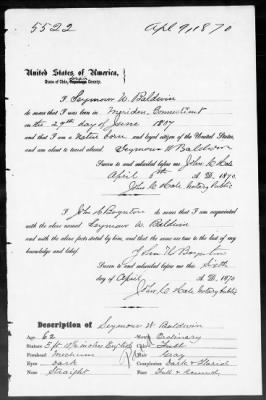 5522 Apl 9, 1870
United States of America,
State of Ohio, County.
I Seymour W Baldwin
do swear that I was born in Meriden, Connecticut
on the 29th day of June 1807
and that I am a native born and loyal citizen of the United States,
and am about to travel abroad. Seymour W Baldwin
Sworn to and subscribed before me John C Hale
April 6th A. D. 1870.
John C Hale Notary Public
I John H Boynton do swear that I am acquainted
with the above named Seymour W Baldwin
and with the above facts stated by him, and that the same are true to the best of my
knowledge and belief. John H Boynton
Sworn to and subscribed before me this Sixth
day of April A. D. 1870
John C Hale Notary Public
Description of Seymour W Baldwin
Age 62 Mouth Ordinary
Stature 5 ft inches English Chin
Forehead Medium Hair Gray
Eyes Dark Complexion Dark & Florid
Nose Straight Face Full &